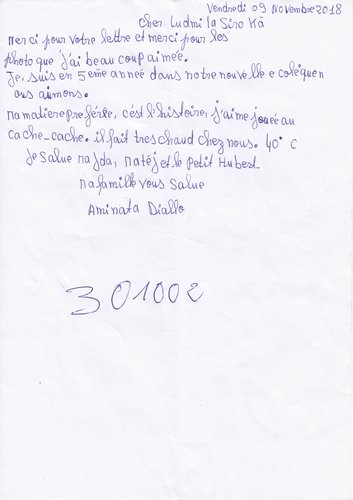 Vendredi 09 Novembre 2018
Cher Ludmila Siro Kà
merci pour votre lettre et merci pour les
photo que j'ai beau coup aimée.
Je suis en 5eme anneé dans notre nouvelle e colequen
ous aimons.
ma matiere preférke, cést l'histoire, j'aime joueé au
cache-cache. il fait tres chaud chez nous. 40° c
Je Salue majda, matéj et le petit Hubert
ma famille vous Salue
Aminata Diallo
301002